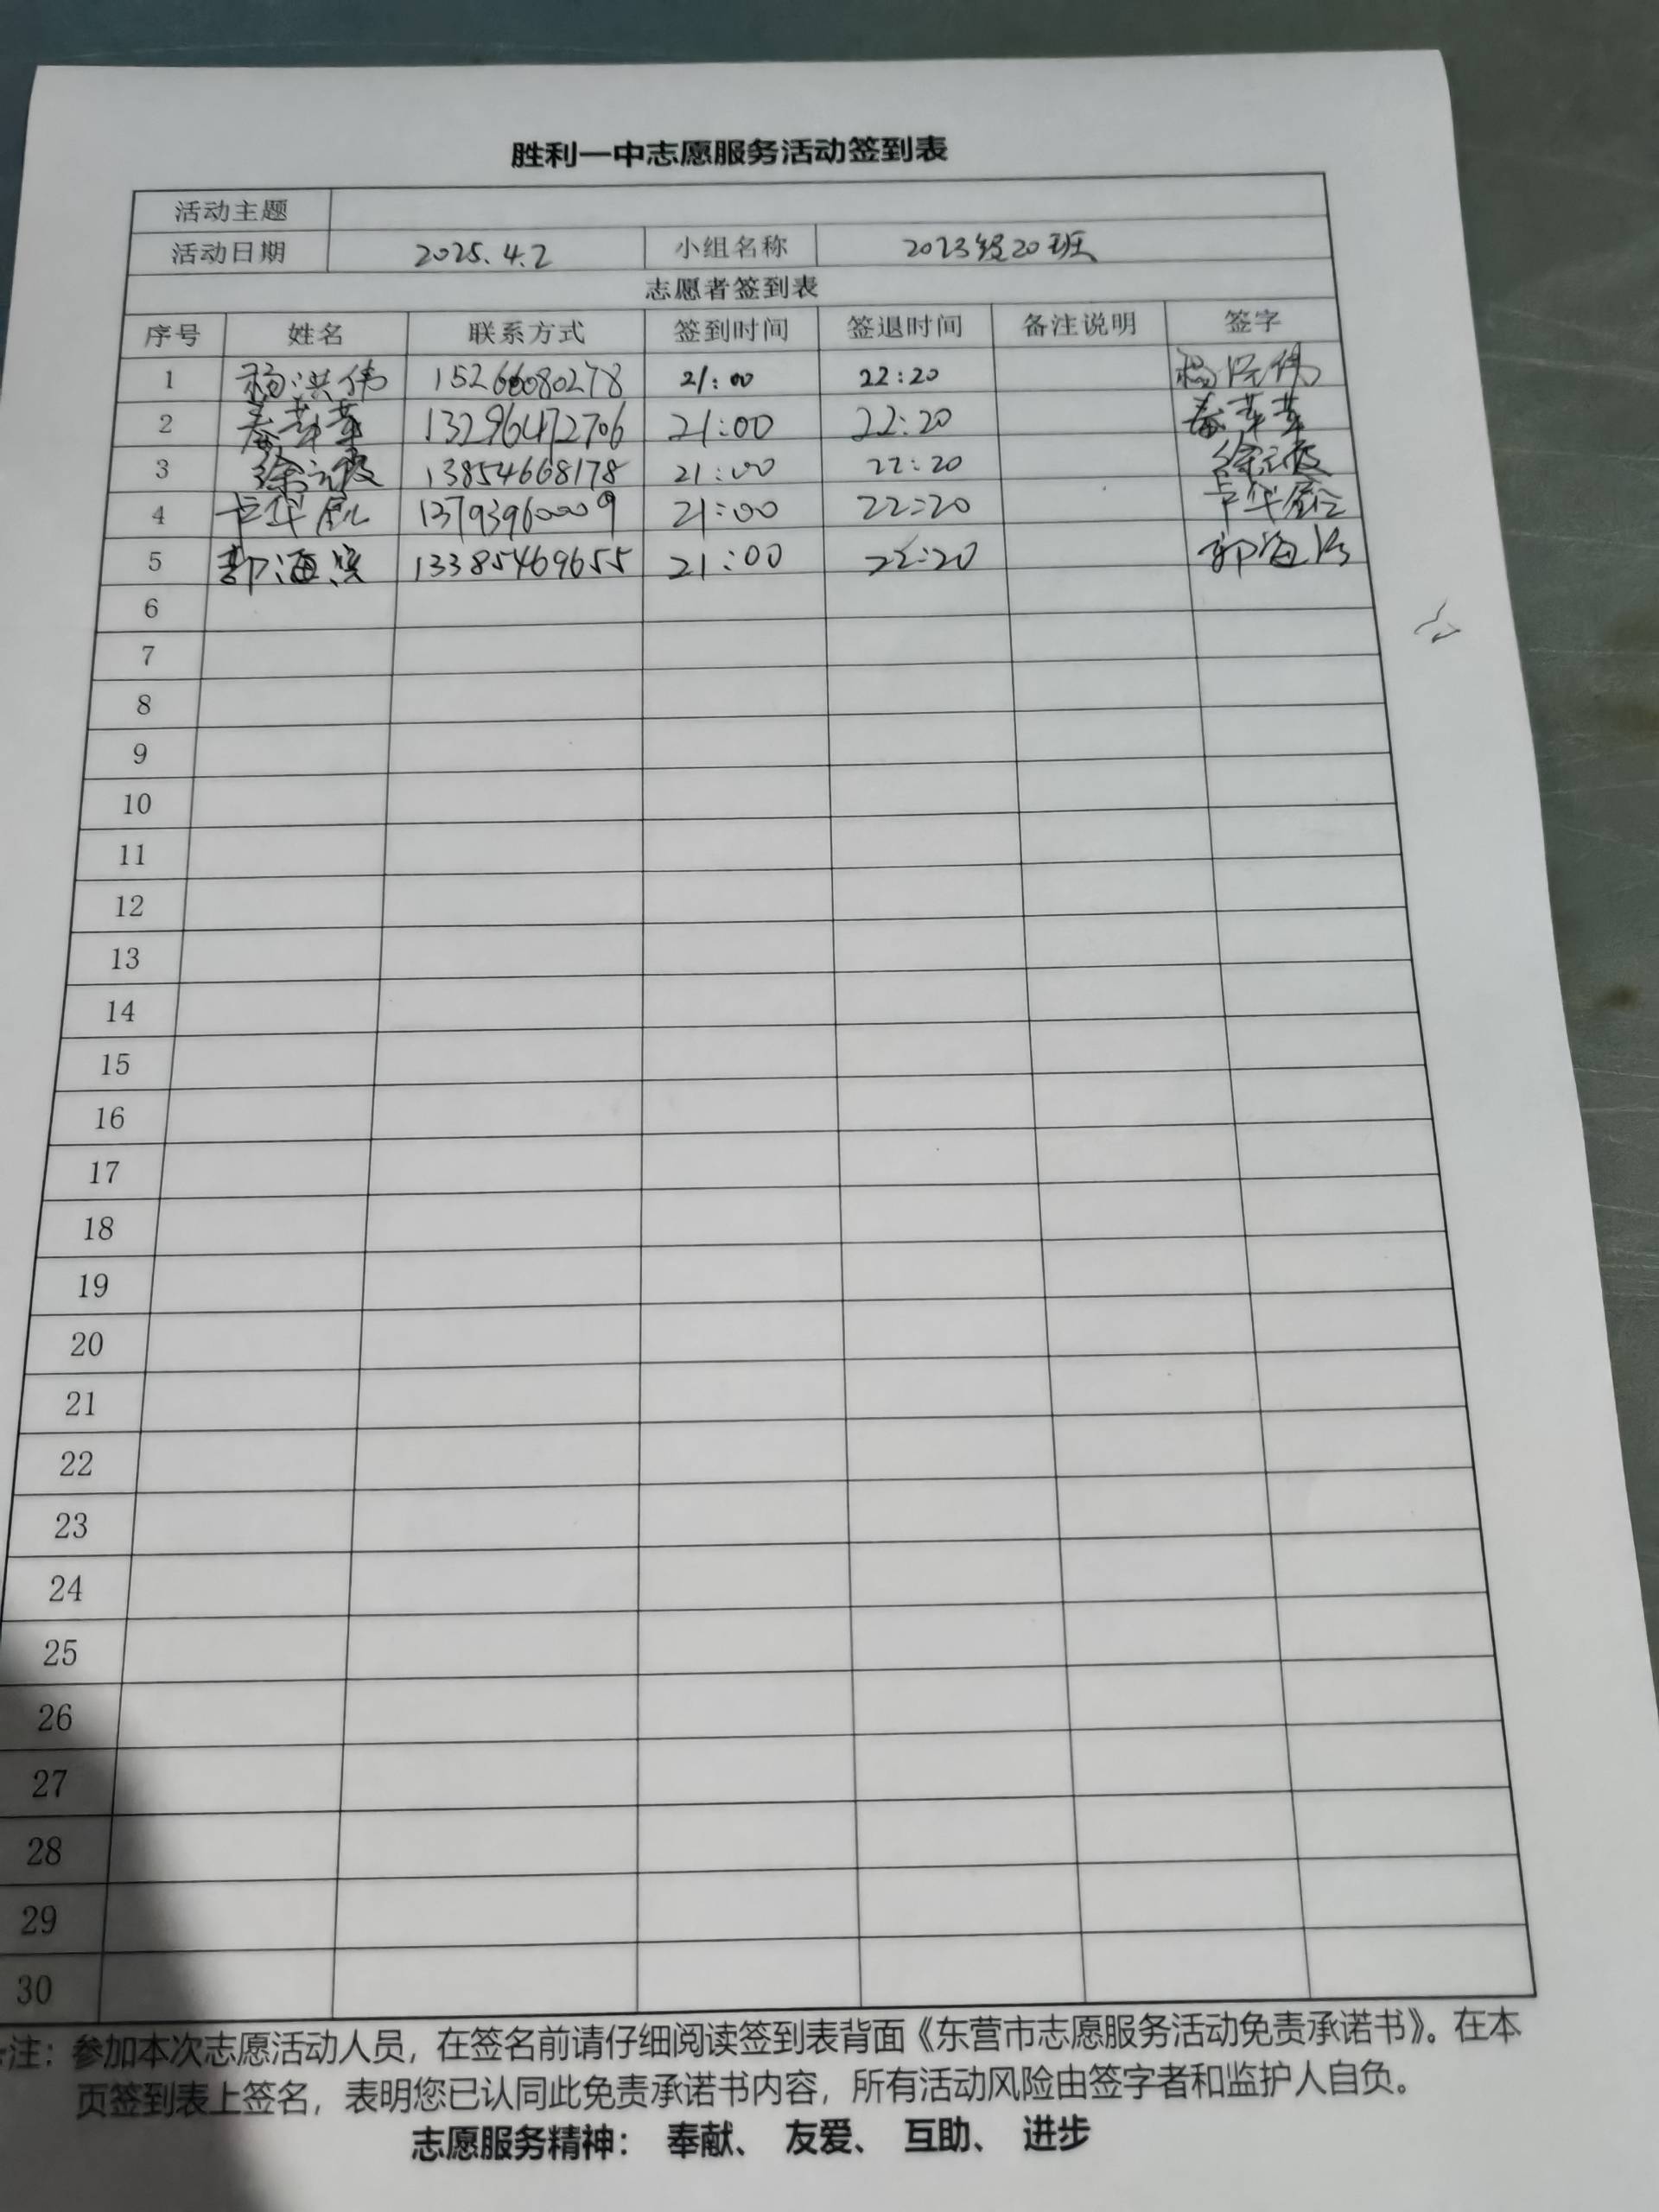 胜利一中志愿服务活动签到表
活动主题
活动日期 2025.4.2 小组名称 2023级20班
志愿者签到表
序号 姓名 联系方式 签到时间 签退时间 备注说明 签字
1 杨洪伟 15266080278 21:00 22:20 杨洪伟
2 13296472706 21:00 22:20
3 徐元霞 13854668178 21:00 22:20 徐元霞
4 13793960009 21:00 22:20
5 郭海滨 13385469655 21:00 22:20 郭海滨
6
7
8
9
10
11
12
13
14
15
16
17
18
19
20
21
22
23
24
25
26
27
28
29
30
注：参加本次志愿活动人员，在签名前请仔细阅读签到表背面《东营市志愿服务活动免责承诺书》。在本
页签到表上签名，表明您已认同此免责承诺书内容，所有活动风险由签字者和监护人自负。
志愿服务精神： 奉献、 友爱、 互助、 进步